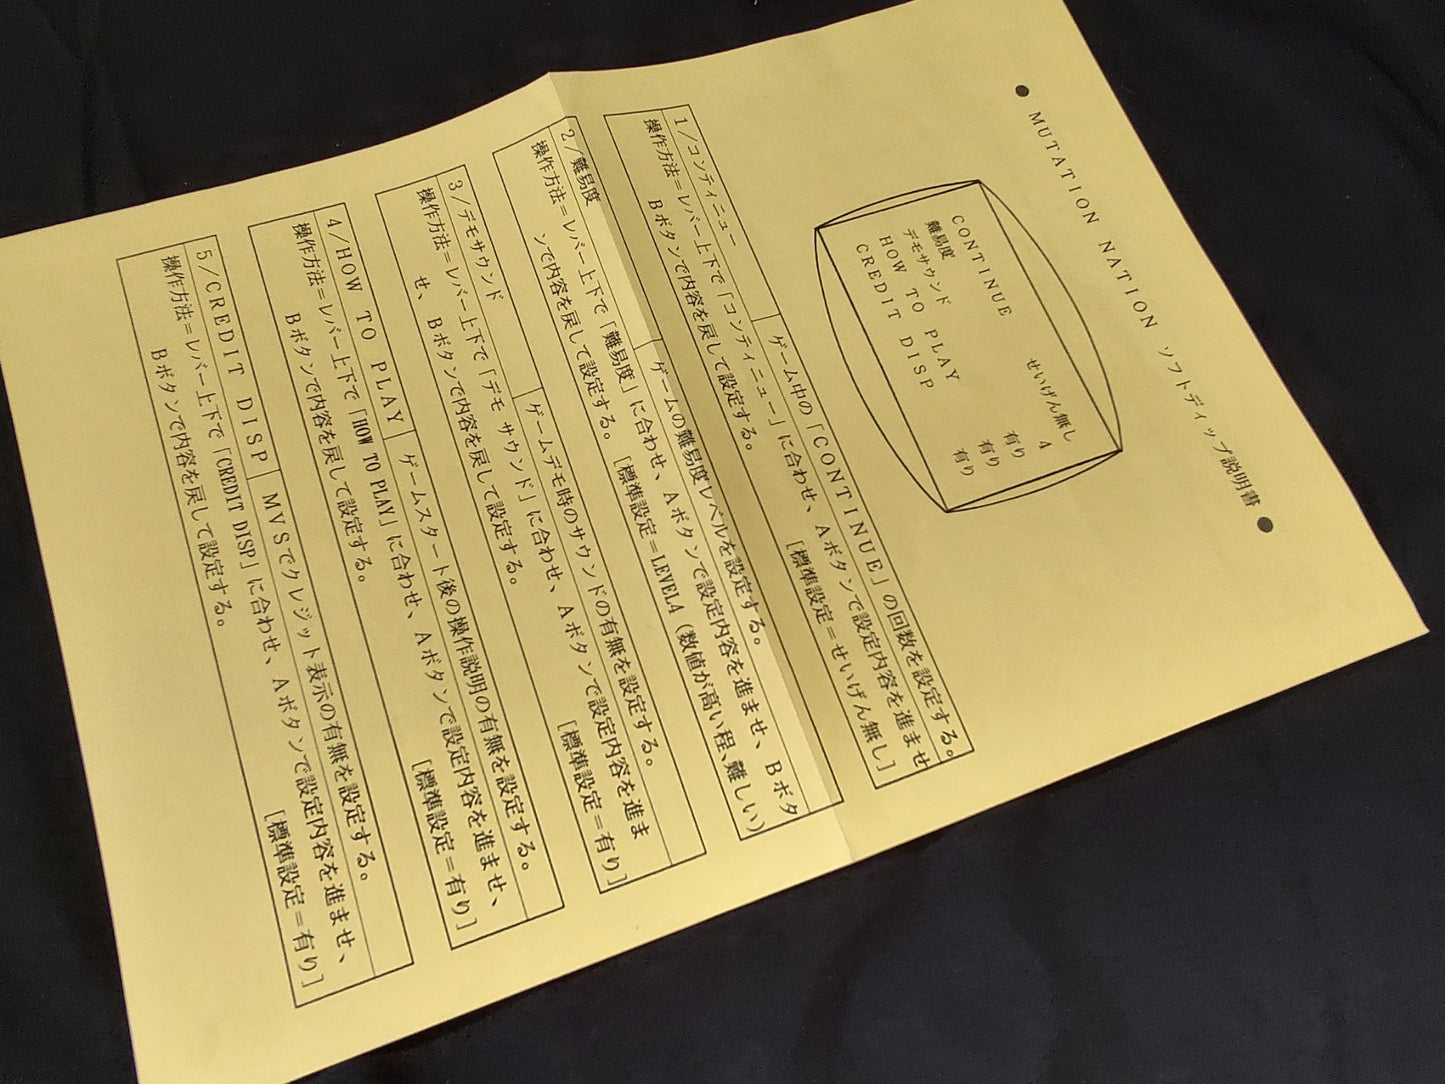 ● MUTATION NATION ソフトディップ説明書 ●
CONTINUE せいげん無し
難易度 A
デモサウンド 有り
HOW TO PLAY 有り
CREDIT DISP 有り
1/コンティニュー ゲーム中の「CONTINUE」の回数を設定する。
操作方法=レバー上下で「コンティニュー」に合わせ、Aボタンで設定内容を進ませ
Bボタンで内容を戻して設定する。 [標準設定=せいげん無し]
2/難易度 ゲームの難易度レベルを設定する。
操作方法=レバー上下で「難易度」に合わせ、Aボタンで設定内容を進ませ、Bボタ
ンで内容を戻して設定する。 [標準設定=LEVEL4(数値が高い程、難しい)
3/デモサウンド ゲームデモ時のサウンドの有無を設定する。
操作方法=レバー上下で「デモ サウンド」に合わせ、Aボタンで設定内容を進ま
せ、Bボタンで内容を戻して設定する。 [標準設定=有り]
4/HOW TO PLAY ゲームスタート後の操作説明の有無を設定する。
操作方法=レバー上下で「HOW TO PLAY」に合わせ、Aボタンで設定内容を進ませ、
Bボタンで内容を戻して設定する。 [標準設定=有り]
5/CREDIT DISP MVSでクレジット表示の有無を設定する。
操作方法=レバー上下で「CREDIT DISP」に合わせ、Aボタンで設定内容を進ませ、
Bボタンで内容を戻して設定する。 [標準設定=有り]